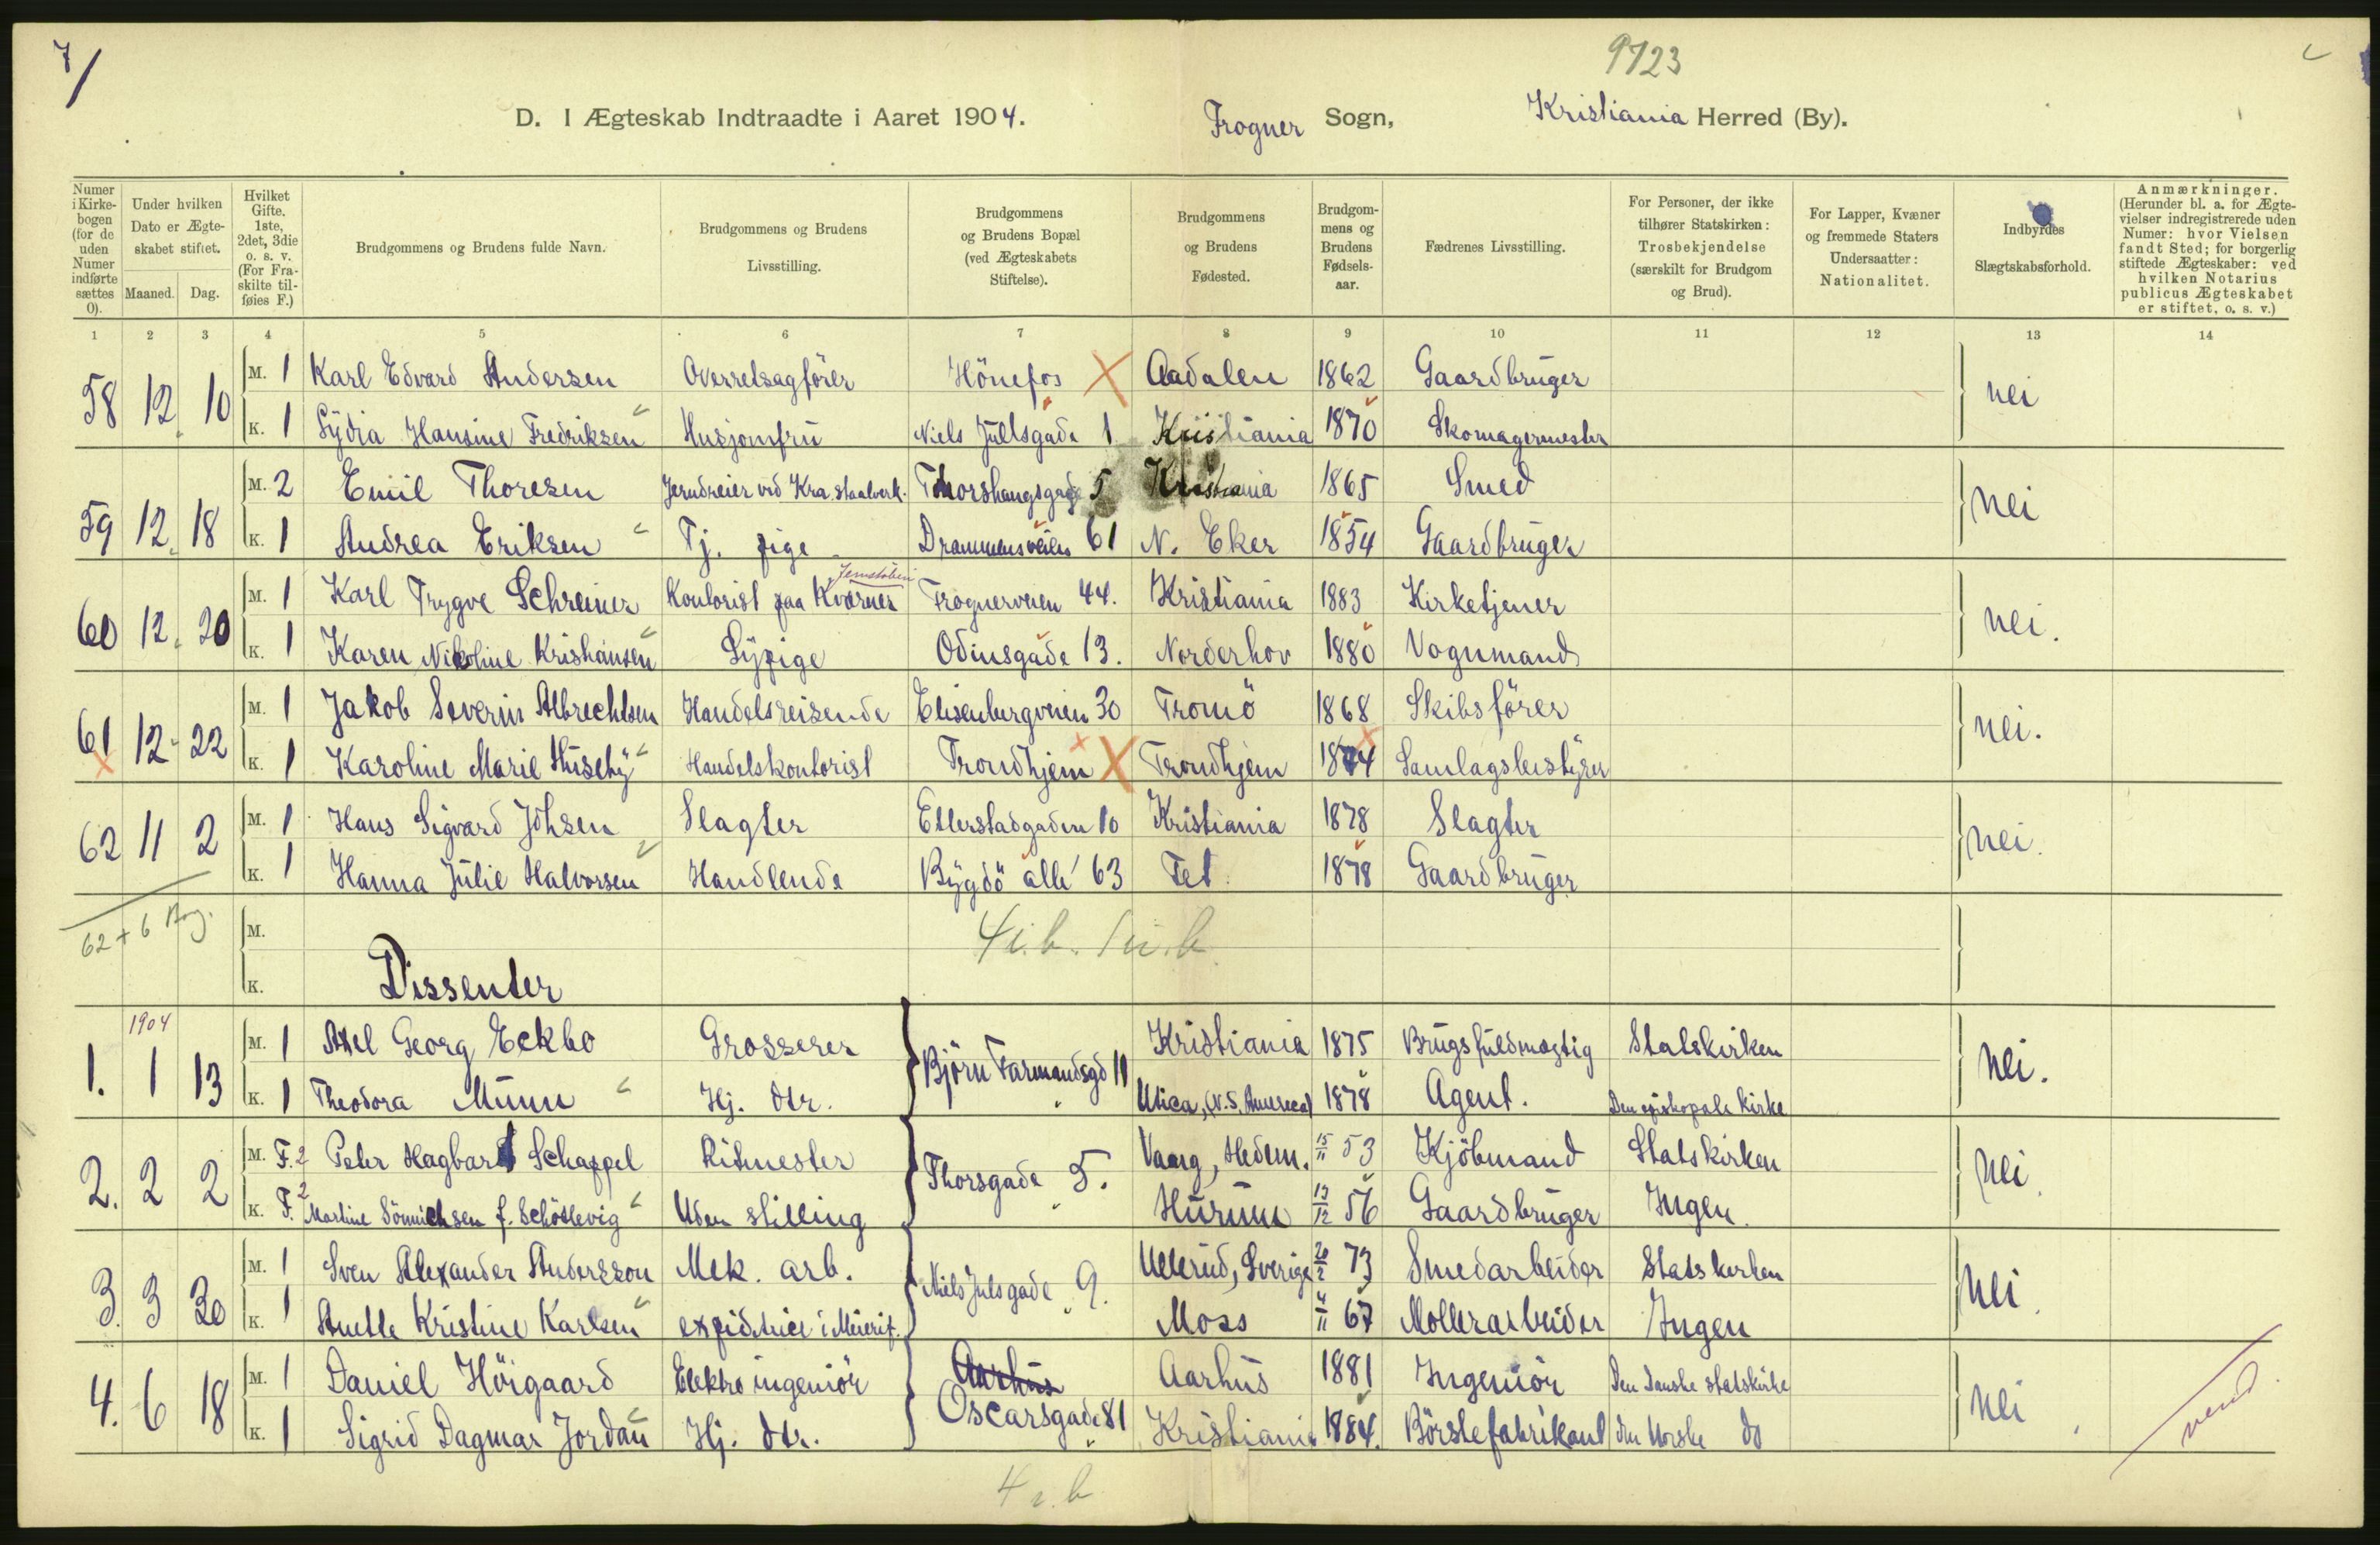 7/
9723
D. I Ægteskab Indtraadte i Aaret 1904. Frogner Sogn, Kristiania Herred (By).
Numer i Kirkebogen (for de uden Numer indførte sættes 0).
Under hvilken Dato er Ægteskabet stiftet.
Maaned. Dag.
Hvilket Gifte. 1ste, 2det, 3die o. s. v. (For Fraskilte tilføies F.)
Brudgommens og Brudens fulde Navn.
Brudgommens og Brudens Livsstilling.
Brudgommens og Brudens Bopæl (ved Ægteskabets Stiftelse).
Brudgommens og Brudens Fødested.
Brudgommens og Brudens Fødselsaar.
Fædrenes Livsstilling.
For Personer, der ikke tilhører Statskirken: Trosbekjendelse (særskilt for Brudgom og Brud).
For Lapper, Kvæner og fremmede Staters Undersaatter: Nationalitet.
Indbyrdes Slægtskabsforhold.
Anmærkninger. (Herunder bl. a. for Ægtevielser indregistrerede uden Numer: hvor Vielsen fandt Sted; for borgerlig stiftede Ægteskaber: ved hvilken Notarius publicus Ægteskabet er stiftet, o. s. v.)
1 2 3 4 5 6 7 8 9 10 11 12 13 14
58 12 10 M. 1 Karl Edvard Andersen Overretsagförer Hönefos Aadalen 1862 Gaardbruger nei
K. 1 Lydia Hansine Fredriksen Husjomfru Niels Jullsgade 1 Kristiania 1870 Skomagermester
59 12 18 M. 2 Emil Thoresen Jerndreier ved Kra. staalverk. Thorshaugsgade 5 Kristiania 1865 Smed nei
K. 1 Andrea Eriksen Tj. pige Drammensveien 61 N. Eker 1854 Gaardbruger
60 12 20 M. 1 Karl Trygve Schreiner Kontorist paa Kværner Jernstøberi Frognerveien 44. Kristiania 1883 Kirketjener nei.
K. 1 Karen Nikoline Kristiansen Sypige Odinsgade 13. Norderhov 1880 Vognmand
61 12 22 M. 1 Jakob Severin Albrechtsen Handelsreisende Elisenbergveien 30 Tromö 1868 Skibsförer nei.
K. 1 Karoline Marie Huseby Handelskontorist Trondhjem Trondhjem 1874 Samlagsbestyrer
62 11 2 M. 1 Hans Sigvard Johsen Slagter Eilerstadgaden 10 Kristiania 1878 Slagter nei.
K. 1 Hanna Julie Halvorsen Handlende Bygdö allé 63 Fet 1878 Gaardbruger
62 + 6 M. 4 i.b. 1 u.b.
K. Dissenter
1904
1. 1 13 M. 1 Axel Georg Eckbo Grosserer Björn Farmandsgd 11 Kristiania 1875 Brugsfuldmægtig Statskirken nei.
K. 1 Theodora Munn Hj. dtr. Utica, (N.S. Amereca) 1878 Agent. Den episkopale Kirke
2. 2 2 M. F. 2 Peter Hagbart Schappel Ritmester Thorsgade 5. Vang, Hedem. 15/11 53 Kjöbmand Statskirken nei.
K. F. 2 Martine Sönnichsen f. Schötlevig Uden stilling Hurum 13/12 56 Gaardbruger Ingen.
3. 3 30 M. 1 Sven Alexander Andersson Mek. arb. Niels Julsgade 9. Ullerud, Sverige 20/2 73 Smedarbeider Statskirken nei.
K. 1 Anette Kristine Karlsen expiditrice i Meierif. Moss 4/11 67 Mollerarbeider Ingen
4. 6 18 M. 1 Daniel Höigaard Elektro ingeniör Aarhus Aarhus 1881 Ingeniör Den danske statskirke nei
K. 1 Sigrid Dagmar Jordan Hj. dtr. Oscarsgade 81 Kristiania 1884. Börstefabrikant den Norske do
vend
4 i. b